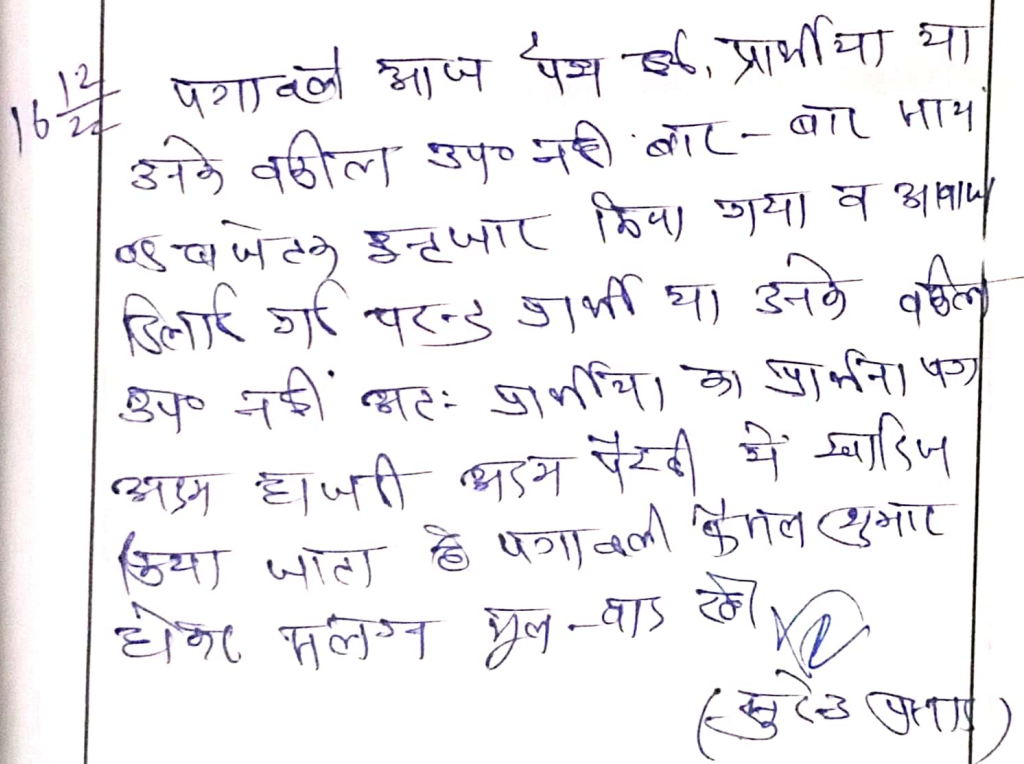 16 12/22 पत्रावली आज पेश हुई, प्रार्थीया या
उनके वकील उप० नही बार-बार सायं
बजे तक इन्तजार किया गया व आवाज
दिलाई गई परन्तु प्रार्थी या उनके वकील
उप० नहीं अतः प्रार्थीया का प्रार्थना पत्र
अदम हाजरी अदम पैरवी में खारिज
किया जाता है पत्रावली फैसल शुमार
होकर संलग्न मूल वाद रहे
(सुरेन्द्र प्रसाद)